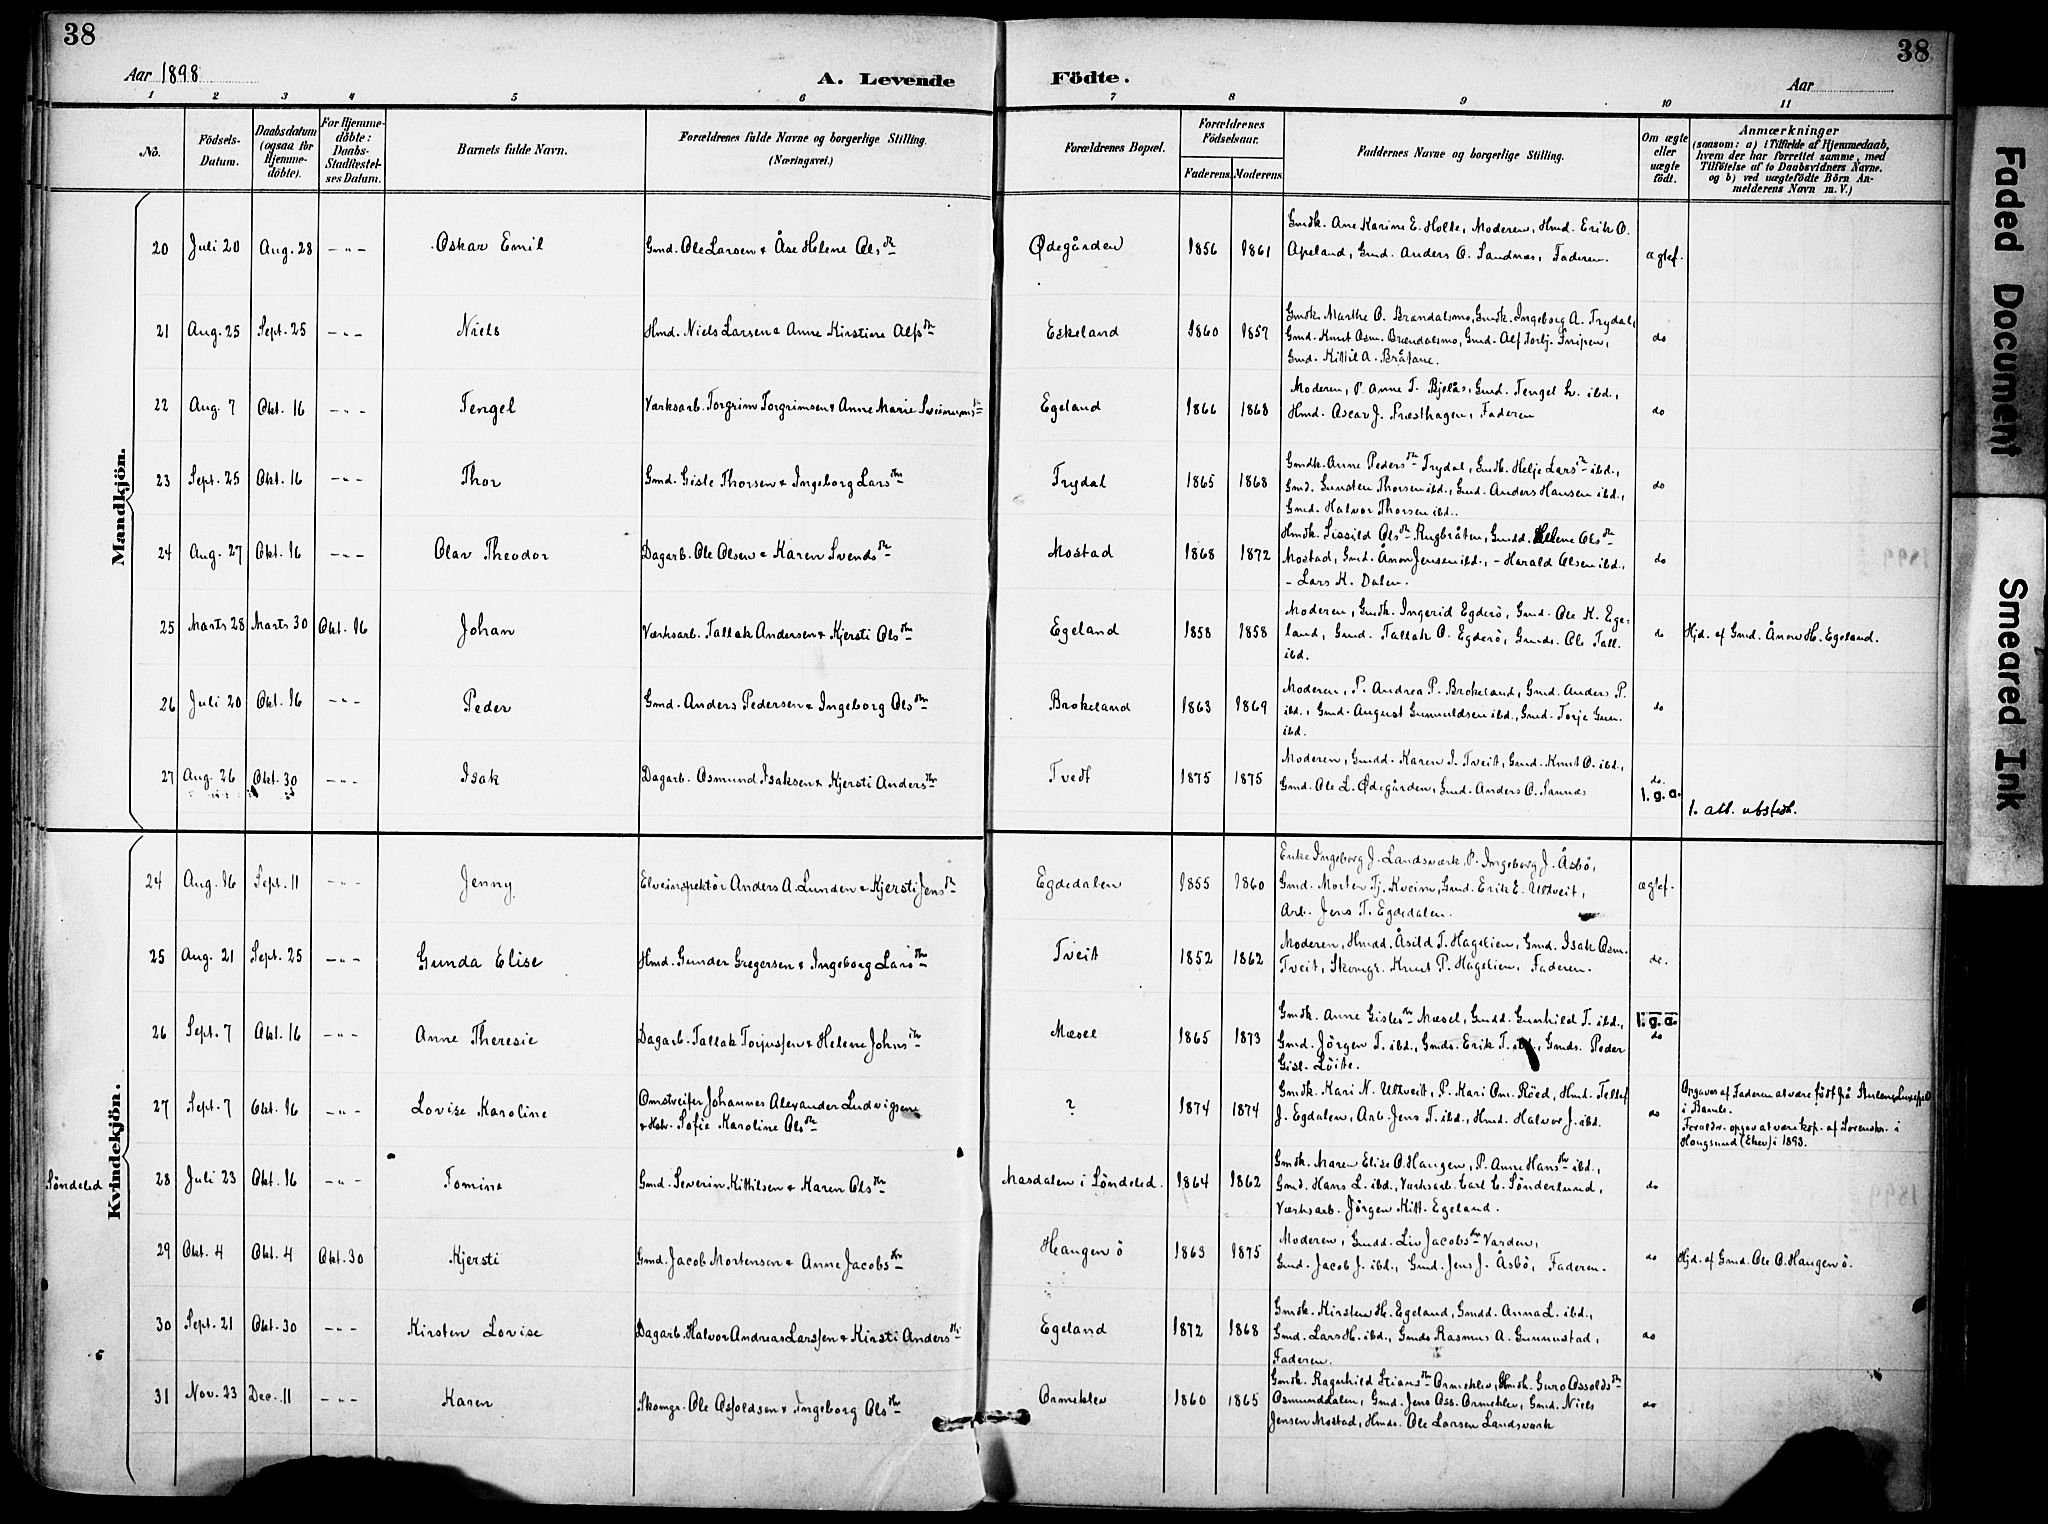 38
38
Aar 1898
A. Levende
Födte.
Aar
1 2 3 4 5 6 7 8 9 10 11
No.
Födsels-Datum.
Daabsdatum (ogsaa for Hjemme-döbte).
For Hjemme-döbte: Daabs-Stadfæstel-ses Datum.
Barnets fulde Navn.
Forældrenes fulde Navne og borgerlige Stilling. (Næringsvei.)
Forældrenes Bopæl.
Forældrenes Födselsaar.
Faderens. Moderens.
Faddernes Navne og borgerlige Stilling.
Om ægte eller uægte födt.
Anmærkninger
(saasom: a) i Tilfælde af Hjemmedaab,
hvem der har forrettet samme, med
Tilföielse af to Daabsvidners Navne.
og b) ved uægtefödte Börn An-
melderens Navn m. V.)
Mandkjön.
20 Juli 20 Aug. 28 -"- Oskar Emil Gmd. Ole Larsen & Åse Helene Olsdtr Ødegården 1856 1861
Gmdk. Ane Karine E. Holte, Moderen, Hmd. Erik O.
Apeland, Gmd. Anders O. Sandnæs, Faderen. ægtef.
21 Aug. 25 Sept. 25 -"- Niels Hmd. Niels Larsen & Anne Kirstine Alfsdtr Eskeland 1860 1857
Gmdk. Marthe O. Brændalsmo, Gmdk. Ingeborg A. Trydal,
Gmd. Knut Osm. Brændalsmo, Gmd. Alf Torbj. Snipen,
Gmd. Kittil A. Bråtane. do
22 Aug. 7 Okt. 16 -"- Tengel Værksarb. Torgrim Torgrimsen & Anne Marie Egeland 1866 1868
Moderen, P. Anne T. Bjelås, Gmd. Tengel L. ibd.,
Hmd. Oscar J. Præsthagen, Faderen do
23 Sept. 25 Okt. 16 -"- Thor Gmd. Gisle Thorsen & Ingeborg Larsdtr Trydal 1865 1868
Gmdk. Anne Pedersdtr Trydal, Gmdk. Helje Larsdtr ibd.,
Gmd. Gunsten Thorsen ibd., Gmd. Anders Hansen ibd.,
Gmd. Halvor Thorsen ibd. do
24 Aug. 27 Okt. 16 -"- Olav Theodor Dagarb. Ole Olsen & Karen Svendsdtr Mostad 1868 1872
Hmdk. Sissild Olsdtr Rugbråten, Gmdd. Helene Olsdtr
Mostad, Gmd. Ånon Jensen ibd., - Harald Olsen ibd.,
- Lars K. Dalen. do
25 Marts 28 Marts 30 Okt. 16 Johan Værksarb. Tallak Andersen & Kjersti Olsdtr Egeland 1858 1858
Moderen, Gmdk. Ingerid Egderö, Gmd. Ole K. Ege-
land, Gmd. Tallak O. Egderö, Gmds. Ole Tall.
ibd. do Hjd. af Gmd. Ånon H. Egeland.
26 Juli 20 Okt. 16 -"- Peder Gmd. Anders Pedersen & Ingeborg Olsdtr Brokeland 1863 1869
Moderen, P. Andrea P. Brokeland, Gmd. Anders P.
ibd., Gmd. August Gunnuldsen ibd., Gmd. Torje Gun.
ibd. do
27 Aug. 26 Okt. 30 -"- Isak Dagarb. Osmund Isaksen & Kjersti Andersdtr Tvedt 1875 1875
Moderen, Gmdd. Karen I. Tveit, Gmd. Knut O. ibd.,
Gmd. Ole L. Ødegården, Gmd. Anders O. Sannæs do.
1. g. a. 1. att. utstedt.
Kvindekjön.
24 Aug. 16 Sept. 11 -"- Jenny Elveinspektör Anders A. Lunden & Kjersti Jensdtr Egdedalen 1855 1860
Enke Ingeborg J. Landsværk, P. Ingeborg J. Åsbö,
Gmd. Morten Tj. Kveim, Gmd. Erik E. Ultveit,
Arb. Jens T. Egdedalen. ægtef.
25 Aug. 21 Sept. 25 -"- Gunda Elise Hmd. Gunder Gregersen & Ingeborg Larsdtr Tveit 1852 1862
Moderen, Hmdd. Åsild T. Hagelien, Gmd. Isak Osm.
Tveit, Skomgr. Knut P. Hagelien, Faderen. do.
26 Sept. 7 Okt. 16 -"- Anne Theresie Dagarb. Tallak Torjussen & Helene Johnsdtr Mæsel 1865 1873
Gmdk. Anne Gislesdtr Mæsel, Gmdd. Gunhild T. ibd.,
Gmd. Jörgen T. ibd., Gmds. Erik T. ibd., Gmds. Peder
Gisl. Löite. 1. g. a. do
27 Sept. 7 Okt. 16 -"- Lovise Karoline Omstreifer Johannes Alexander Ludvigsen
& Hstr. Sofie Karoline Olsdtr ? 1874 1874
Gmdk. Kari N. Ultveit, P. Kari Om. Röed, Hmd. Tellef
J. Egdalen, Arb. Jens T. ibd., Hmd. Halvor J. ibd. do
Opgaves af Faderen at være født på
i Bamle.
Foreldr. opgav at være kop. af Sorenskr. i
Hougsund (Eker) i 1893.
Söndeled 28 Juli 23 Okt. 16 -"- Tomine Gmd. Severin Kittilsen & Karen Olsdtr Masdalen i Söndeled. 1864 1862
Gmdk. Maren Elise O. Haugen, P. Anne Hansdtr ibd.,
Gmd. Hans L. ibd., Værksarb. Carl C. Sönderlund,
Værksarb. Jörgen Kitt. Egeland. do
29 Okt. 4 Okt. 4 Okt. 30 Kjersti Gmd. Jacob Mortensen & Anne Jacobsdtr Haugen ö 1863 1875
Moderen, Gmdd. Liv Jacobsdtr Varden,
Gmd. Jacob J. ibd., Gmd. Jens J. Åsbö, Faderen. do Hjd. af Gmd. Ole O. Haugen ö.
30 Sept. 21 Okt. 30 -"- Kirsten Lovise Dagarb. Halvor Andreas Larssen & Kirsti Andersdtr Egeland 1872 1868
Gmdk. Kirsten H. Egeland, Gmdd. Anna L. ibd.,
Gmd. Lars H. ibd., Gmds. Rasmus A. Gunnustad,
Faderen. do
31 Nov. 23 Dec. 11 -"- Karen Skomgr. Ole Osfoldsen & Ingeborg Olsdtr Ormeklev 1860 1865
Gmdk. Ragnhild Stiansdtr Ormeklev, Hmdk. Guro Ossoldsdtr
Osmunddalen, Gmd. Jens Oss. Ormeklev, Gmd. Niels
Jensen Mostad, Hmds. Ole Larsen Landsværk do
Faded Document
Smeared Ink